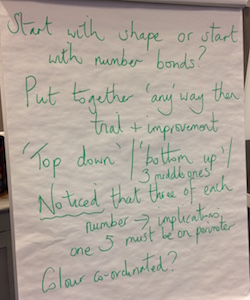 Start with shape or start
with number bonds?
Put together 'any' way then
trial + improvement
'Top down' / 'bottom up' /
3 middle ones
Noticed that three of each
number → implications,
one 5 must be on perimeter
Colour co-ordinated?